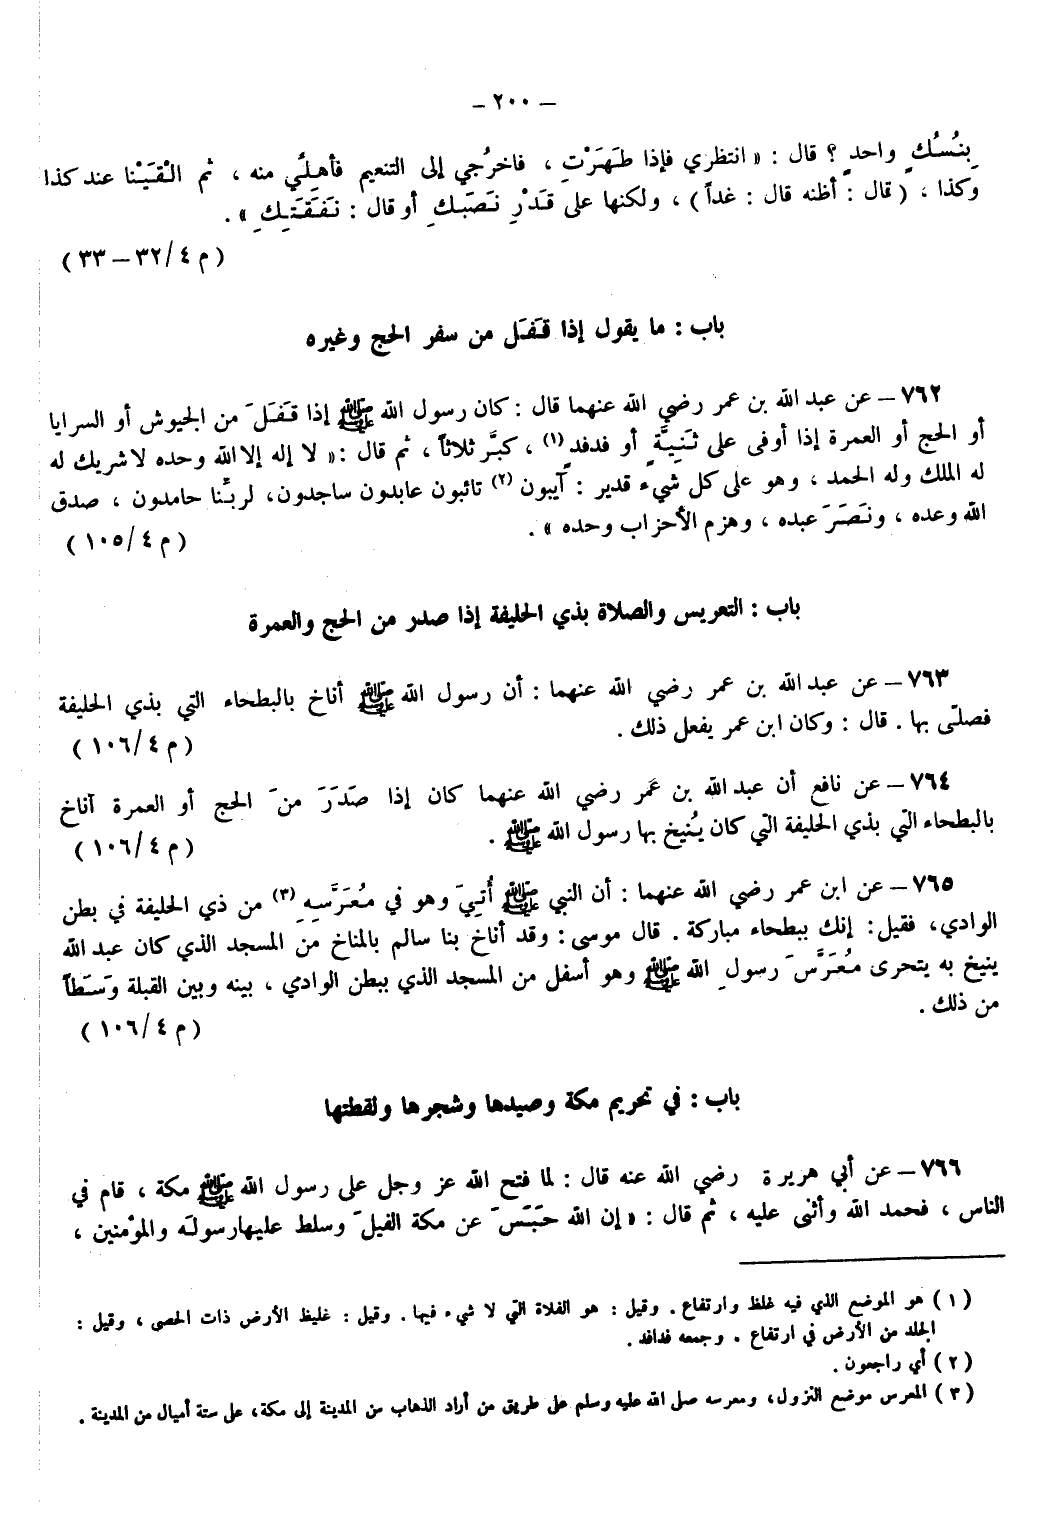 – ٢٠٠ –
بِنُسُكٍ واحدٍ ؟ قال : « انتظري فإذا طَهَرْتِ ، فاخرُجي إلى التنعيم فأهِلِّي منه ، ثم الْقَيْنا عند كذا
وكذا ، ( قال : أظنه قال : غداً ) ، ولكنها على قَدْرِ نَصَبِكِ أو قال : نَفَقَتِكِ » .
( م ٤/ ٣٢ – ٣٣ )
باب : ما يقول إذا قَفَل من سفر الحج وغيره
٧٦٢ – عن عبد الله بن عمر رضي الله عنهما قال : كان رسول الله ﷺ إذا قَفَلَ من الجيوش أو السرايا
أو الحج أو العمرة إذا أوفى على ثَنِيةٍ أو فدفدٍ (١) ، كبَّر ثلاثاً ، ثم قال : « لا إله إلا الله وحده لا شريك له
له الملك وله الحمد ، وهو على كل شيء قدير : آيبون (٢) تائبون عابدون ساجدون، لربِّنا حامدون ، صدق
الله وعده ، ونَصَرَ عبده ، وهزم الأحزاب وحده » .
( م ٤/ ١٠٥ )
باب : التعريس والصلاة بذي الحليفة إذا صدر من الحج والعمرة
٧٦٣ – عن عبد الله بن عمر رضي الله عنهما : أن رسول الله ﷺ أناخ بالبطحاء التي بذي الحليفة
فصلّى بها . قال : وكان ابن عمر يفعل ذلك .
( م ٤/ ١٠٦ )
٧٦٤ – عن نافع أن عبد الله بن عمر رضي الله عنهما كان إذا صَدَرَ منَ الحج أو العمرة أناخ
بالبطحاء التي بذي الحليفة التي كان يُنيخ بها رسول الله ﷺ .
( م ٤/ ١٠٦ )
٧٦٥ – عن ابن عمر رضي الله عنهما : أن النبي ﷺ أُتِيَ وهو في مُعَرَّسِهِ (٣) من ذي الحليفة في بطن
الوادي، فقيل: إنك ببطحاء مباركة . قال موسى : وقد أناخ بنا سالم بالمناخ من المسجد الذي كان عبد الله
ينيخ به يتحرى مُعَرَّسَ رسولِ الله ﷺ وهو أسفل من المسجد الذي ببطن الوادي ، بينه وبين القبلة وَسَطاً
من ذلك .
( م ٤/ ١٠٦ )
باب : في تحريم مكة وصيدها وشجرها ولقطتها
٧٦٦ – عن أبي هريرة رضي الله عنه قال : لما فتح الله عز وجل على رسول الله ﷺ مكة ، قام في
الناس ، فحمد الله وأثنى عليه ، ثم قال : « إن الله حَبَسَ عن مكة الفيلَ وسلط عليها رسولَه والمؤمنين ،
( ١ ) هو الموضع الذي فيه غلظ وارتفاع . وقيل : هو الفلاة التي لا شيء فيها . وقيل : غليظ الأرض ذات الحصى ، وقيل :
الجلد من الأرض في ارتفاع . وجمعه فدافد .
( ٢ ) أي راجعون .
( ٣ ) المعرس موضع النزول، ومعرسه صلى الله عليه وسلم على طريق من أراد الذهاب من المدينة إلى مكة، على ستة أميال من المدينة .